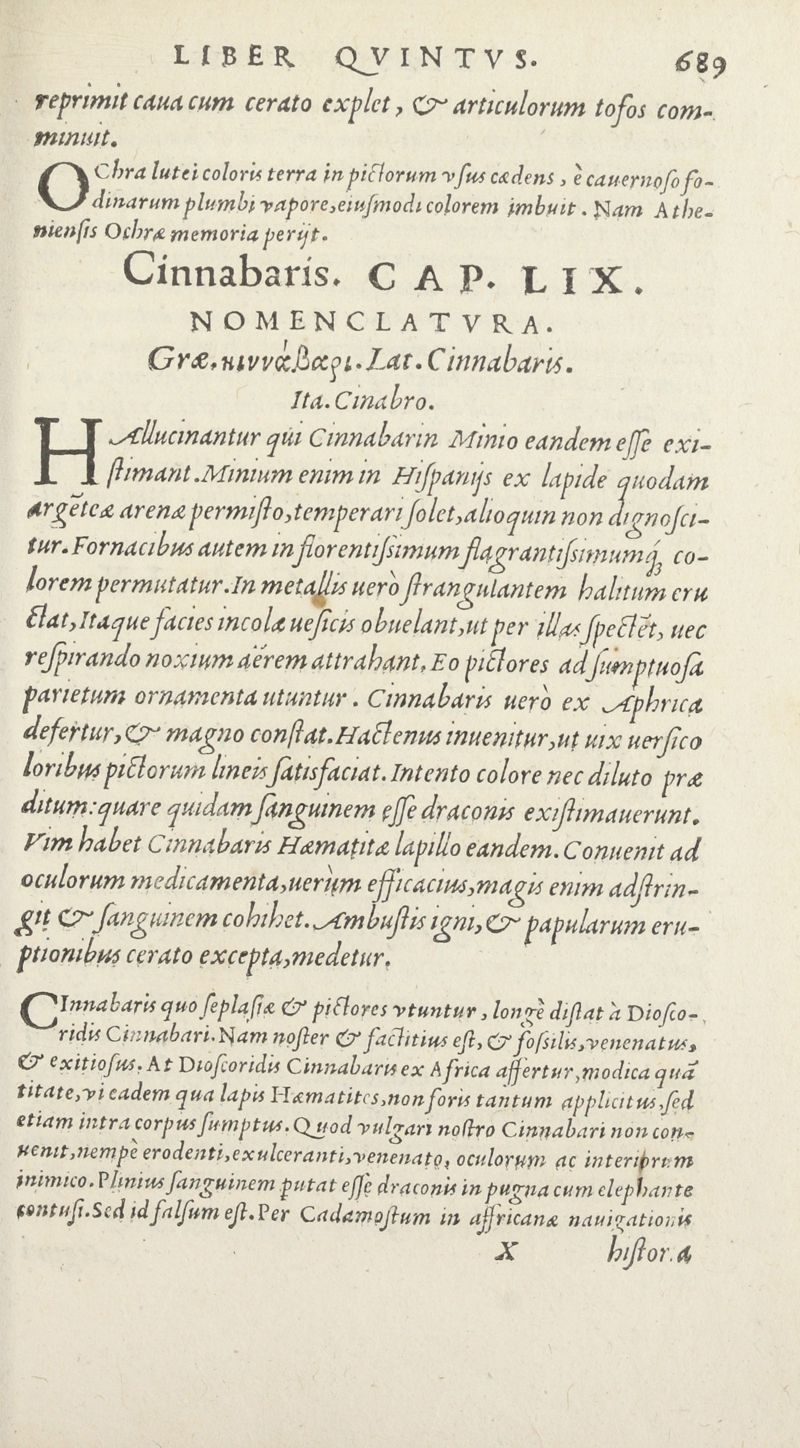 LIBER QVINTVS. 689
reprimit caua cum cerato explet, & articulorum tofos com-
minuit.
OChra lutei coloris terra in pictorum vsus cædens, è cauernoso fo-
dinarum plumbi vapore, eiusmodi colorem imbuit. Nam Athe-
niensis Ochræ memoria perijt.
Cinnabaris. CAP. LIX.
NOMENCLATVRA.
Græ. κιννάβαρι. Lat. Cinnabaris.
Ita. Cinabro.
HAllucinantur qui Cinnabarin Minio eandem esse exi-
stimant. Minium enim in Hispanijs ex lapide quodam
argēteæ arenæ permisto, temperari solet, alioquin non dignosci-
tur. Fornacibus autem in florentissimum flagrantissimumq́; co-
lorem permutatur. In metallis uerò strangulantem halitum eru
ctat, Itaque facies incolæ ueficis obuelant, ut per illas spectēt, nec
respirando noxium aërem attrahant, Eo pictores ad sumptuosa
parietum ornamenta utuntur. Cinnabaris uerò ex Aphrica
defertur, & magno constat. Hactenus inuenitur, ut uix uersico
loribus pictorum lineis satisfaciat. Intento colore nec diluto præ
ditum: quare quidam sanguinem esse draconis existimauerunt.
Vim habet Cinnabaris Hæmatitæ lapillo eandem. Conuenit ad
oculorum medicamenta, uerùm efficacius, magis enim adstrin-
git & sanguinem cohibet. Ambustis igni, & papularum eru-
ptionibus cerato excepta, medetur.
CInnabaris quo seplasiæ & pictores vtuntur, longè distat à Diosco-
ridis Cinnabari. Nam noster & factitius est, & fossilis, venenatus,
& exitiosus. At Dioscoridis Cinnabaris ex Africa affertur, modica quā
titate, vi eadem qua lapis Hæmatites, non foris tantum applicitus, sed
etiam intra corpus sumptus. Quod vulgari nostro Cinnabari non con-
uenit, nempè erodenti, exulceranti, venenato, oculorum ac interiorum
inimico. Plinius sanguinem putat esse draconis in pugna cum elephante
contusi. Sed id falsum est. Per Cadamostum in affricanæ nauigationis
X histor. a